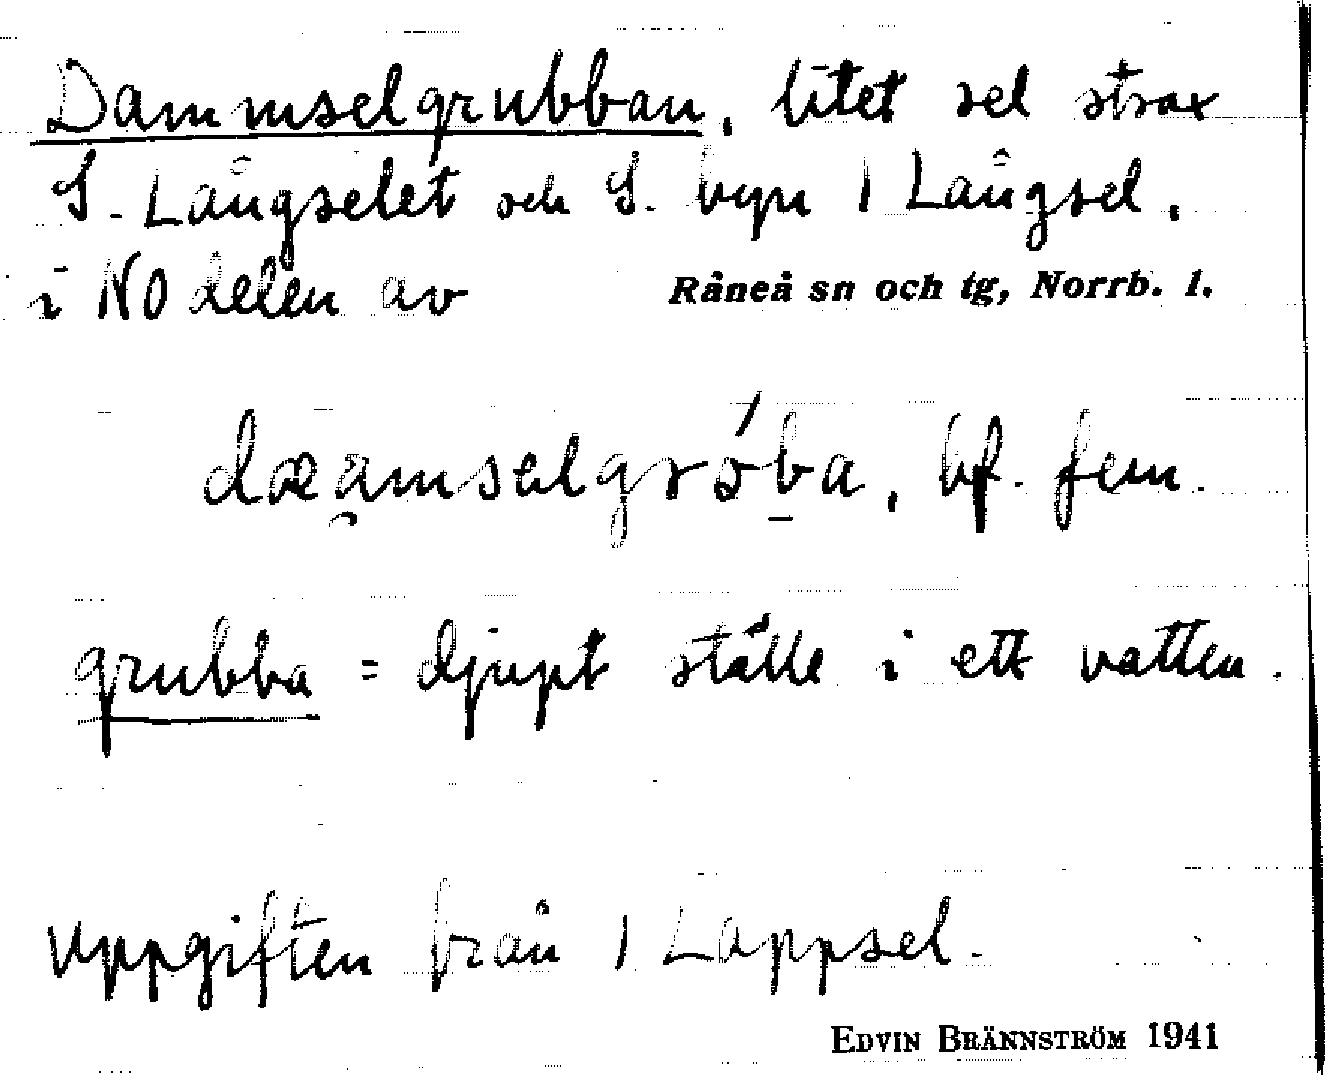 Dammselgrubban, litet sel strax
S. Långselet och S. byn 1 Långsel,
i NO delen av Råneå sn och tg, Norrb. l.
bf. fem.
grubba = djupt ställe i ett vatten.
Uppgiften från 1 Lappsel.
EDVIN BRÄNNSTRÖM 1941